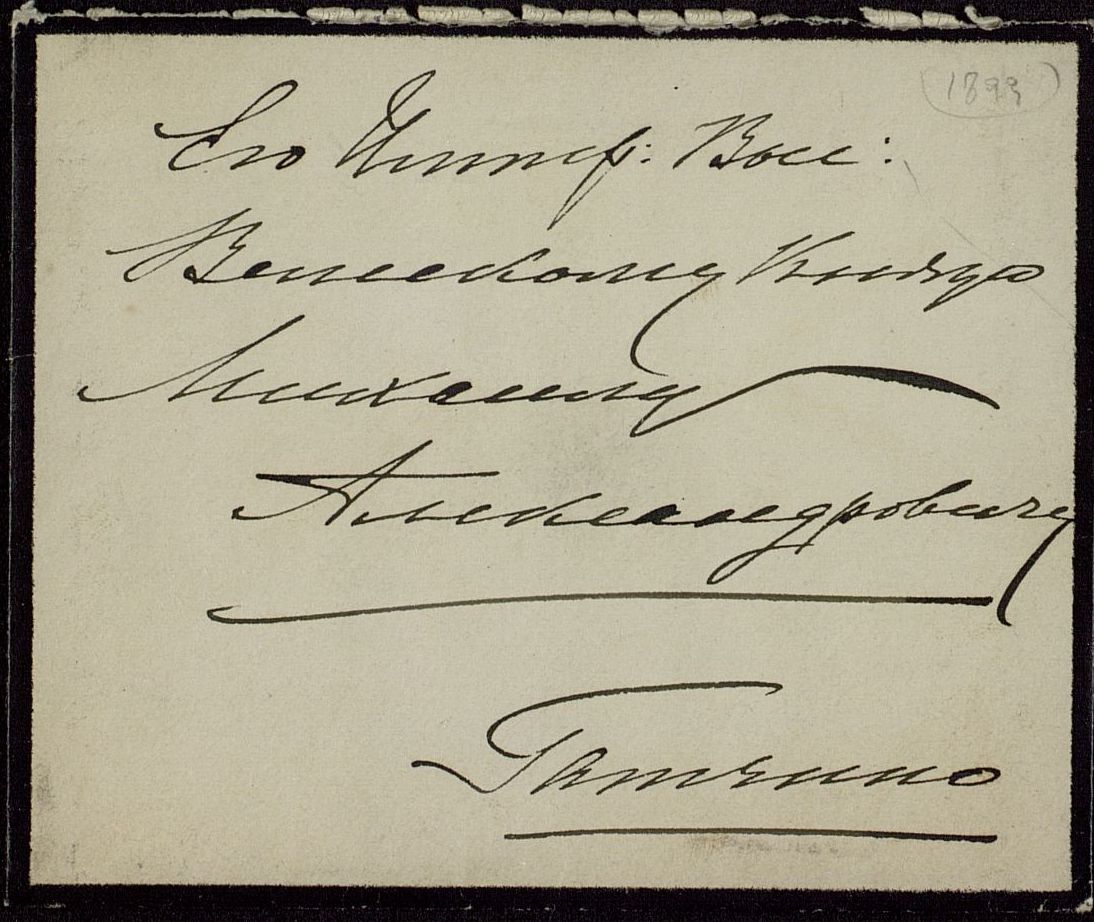 (1899)
Его Импер: Выс:
Великому Князю
Михаилу
Александровичу
Гатчино